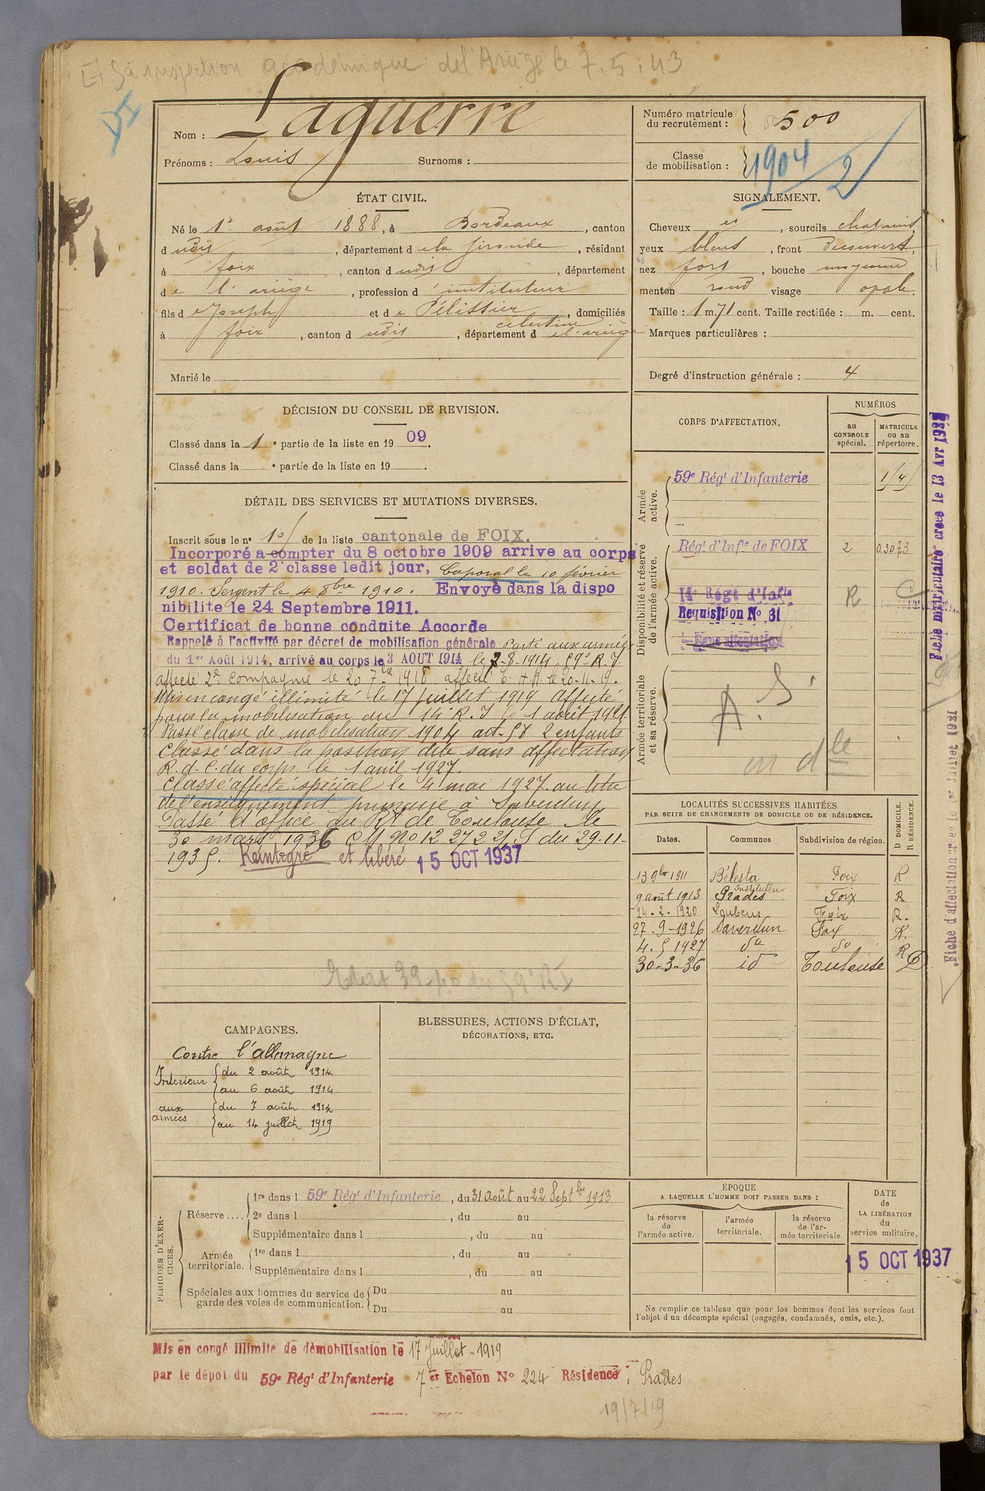 inspection académique de l'Ariège le 7.5.43
Nom : Laguerre
Prénoms : Louis Surnoms :
Numéro matricule du recrutement : 500
Classe de mobilisation : 1904 / 2
ÉTAT CIVIL.
Né le 1er août 1888, à Bordeaux, canton
dudit, département de la Gironde, résidant
à foix, canton dudit, département
de l'ariège, profession d'instituteur
fils de Joseph et de Pélissier célestine, domiciliés
à foix, canton dudit, département de l'ariège
Marié le
SIGNALEMENT.
Cheveux et, sourcils chatains
yeux bleus, front découvert,
nez fort, bouche moyenne
menton rond visage ovale.
Taille : 1 m. 71 cent. Taille rectifiée : m. cent.
Marques particulières :
Degré d'instruction générale : 4
DÉCISION DU CONSEIL DE REVISION.
Classé dans la 1e partie de la liste en 1909.
Classé dans la e partie de la liste en 19 .
DÉTAIL DES SERVICES ET MUTATIONS DIVERSES.
Inscrit sous le n° 10 de la liste cantonale de FOIX.
Incorporé a compter du 8 octobre 1909 arrive au corps
et soldat de 2e classe ledit jour, Caporal le 10 février
1910. Sergent le 4 8bre 1910. Envoyé dans la dispo
nibilite le 24 Septembre 1911.
Certificat de bonne conduite Accorde
Rappelé à l'activité par décret de mobilisation générale Parti aux armées
du 1er Août 1914, arrivé au corps le 3 AOUT 1914 le 7-8-1914 59e R.I.
affecté 2e Compagnie le 20 7bre 1918
Mis en congé illimité le 17 Juillet 1919 Affecté
pour la mobilisation au 14e R.I le 1 août 1921.
Passé classe de mobilisation 1904 art. 58 2 enfants
Classé dans la position dite sans affectation
R.d.C. du corps le 1 avril 1927.
Classé affecté spécial le 4 mai 1927 au titre
de l'enseignement primaire à Saverdun
Passé d'office au Rt de Toulouse le
30 mars 1936 C M No 12 272 2/I. S du 29-11-
1935. Réintégré et libéré 15 OCT 1937
CORPS D'AFFECTATION.
NUMÉROS
au CONTROLE spécial.
MATRICULE ou au répertoire.
Armée active.
59e Régt d'Infanterie
Disponibilité et réserve de l'armée active.
Régt d'Infie de FOIX 2
14e Régt d'Infie R C
Requisition No 61
Sans affectation
Armée territoriale et sa réserve.
A. S.
Fiche matriculaire créée le 13 Avr 1928
Fiche d'affectation créée le 1er Juillet 1931
LOCALITÉS SUCCESSIVES HABITÉES
PAR SUITE DE CHANGEMENTS DE DOMICILE OU DE RÉSIDENCE.
Dates. Communes Subdivision de région. D DOMICILE. R RÉSIDENCE.
13 9bre 1911 Bélesta Foix R
9 août 1913 Prades Instituteur Foix R
24-2-1920 Loubens Foix R.
27-9-1926 Saverdun Foix R.
4.5 1927 do do R
30-3-36 id Toulouse D
CAMPAGNES.
Contre l'allemagne
Intérieur du 2 août 1914
au 6 août 1914
aux armées du 7 août 1914
au 14 juillet 1919
BLESSURES, ACTIONS D'ÉCLAT,
DÉCORATIONS, ETC.
PÉRIODES D'EXERCICES.
Réserve .... 1re dans l 59e Régt d'Infanterie, du 31 août au 22 Septbre 1913
2e dans l , du au
Supplémentaire dans l , du au
Armée territoriale. 1re dans l , du au
Supplémentaire dans l , du au
Spéciales aux hommes du service de garde des voies de communication. Du au
Du au
ÉPOQUE
A LAQUELLE L'HOMME DOIT PASSER DANS :
la réserve de l'armée active.
l'armée territoriale.
la réserve de l'armée territoriale.
DATE de LA LIBÉRATION du service militaire.
15 OCT 1937
Ne remplir ce tableau que pour les hommes dont les services font
l'objet d'un décompte spécial (engagés, condamnés, omis, etc.).
Mis en congé illimité de démobilisation le 17 Juillet-1919
par le dépot du 59e Régt d'Infanterie 7er Echelon No 224 Résidence : Prades
19/7/19